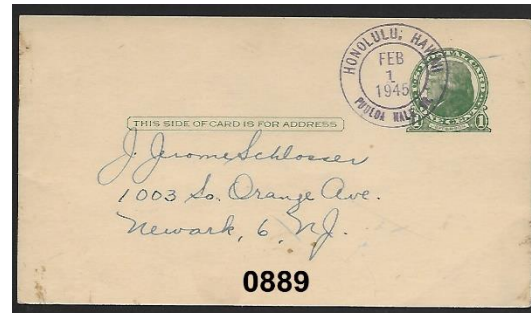 HONOLULU, HAWAII
FEB
1
1945
THIS SIDE OF CARD IS FOR ADDRESS
J. Jerome Schlosser
1003 So. Orange Ave.
Newark, 6, N.J.
0889